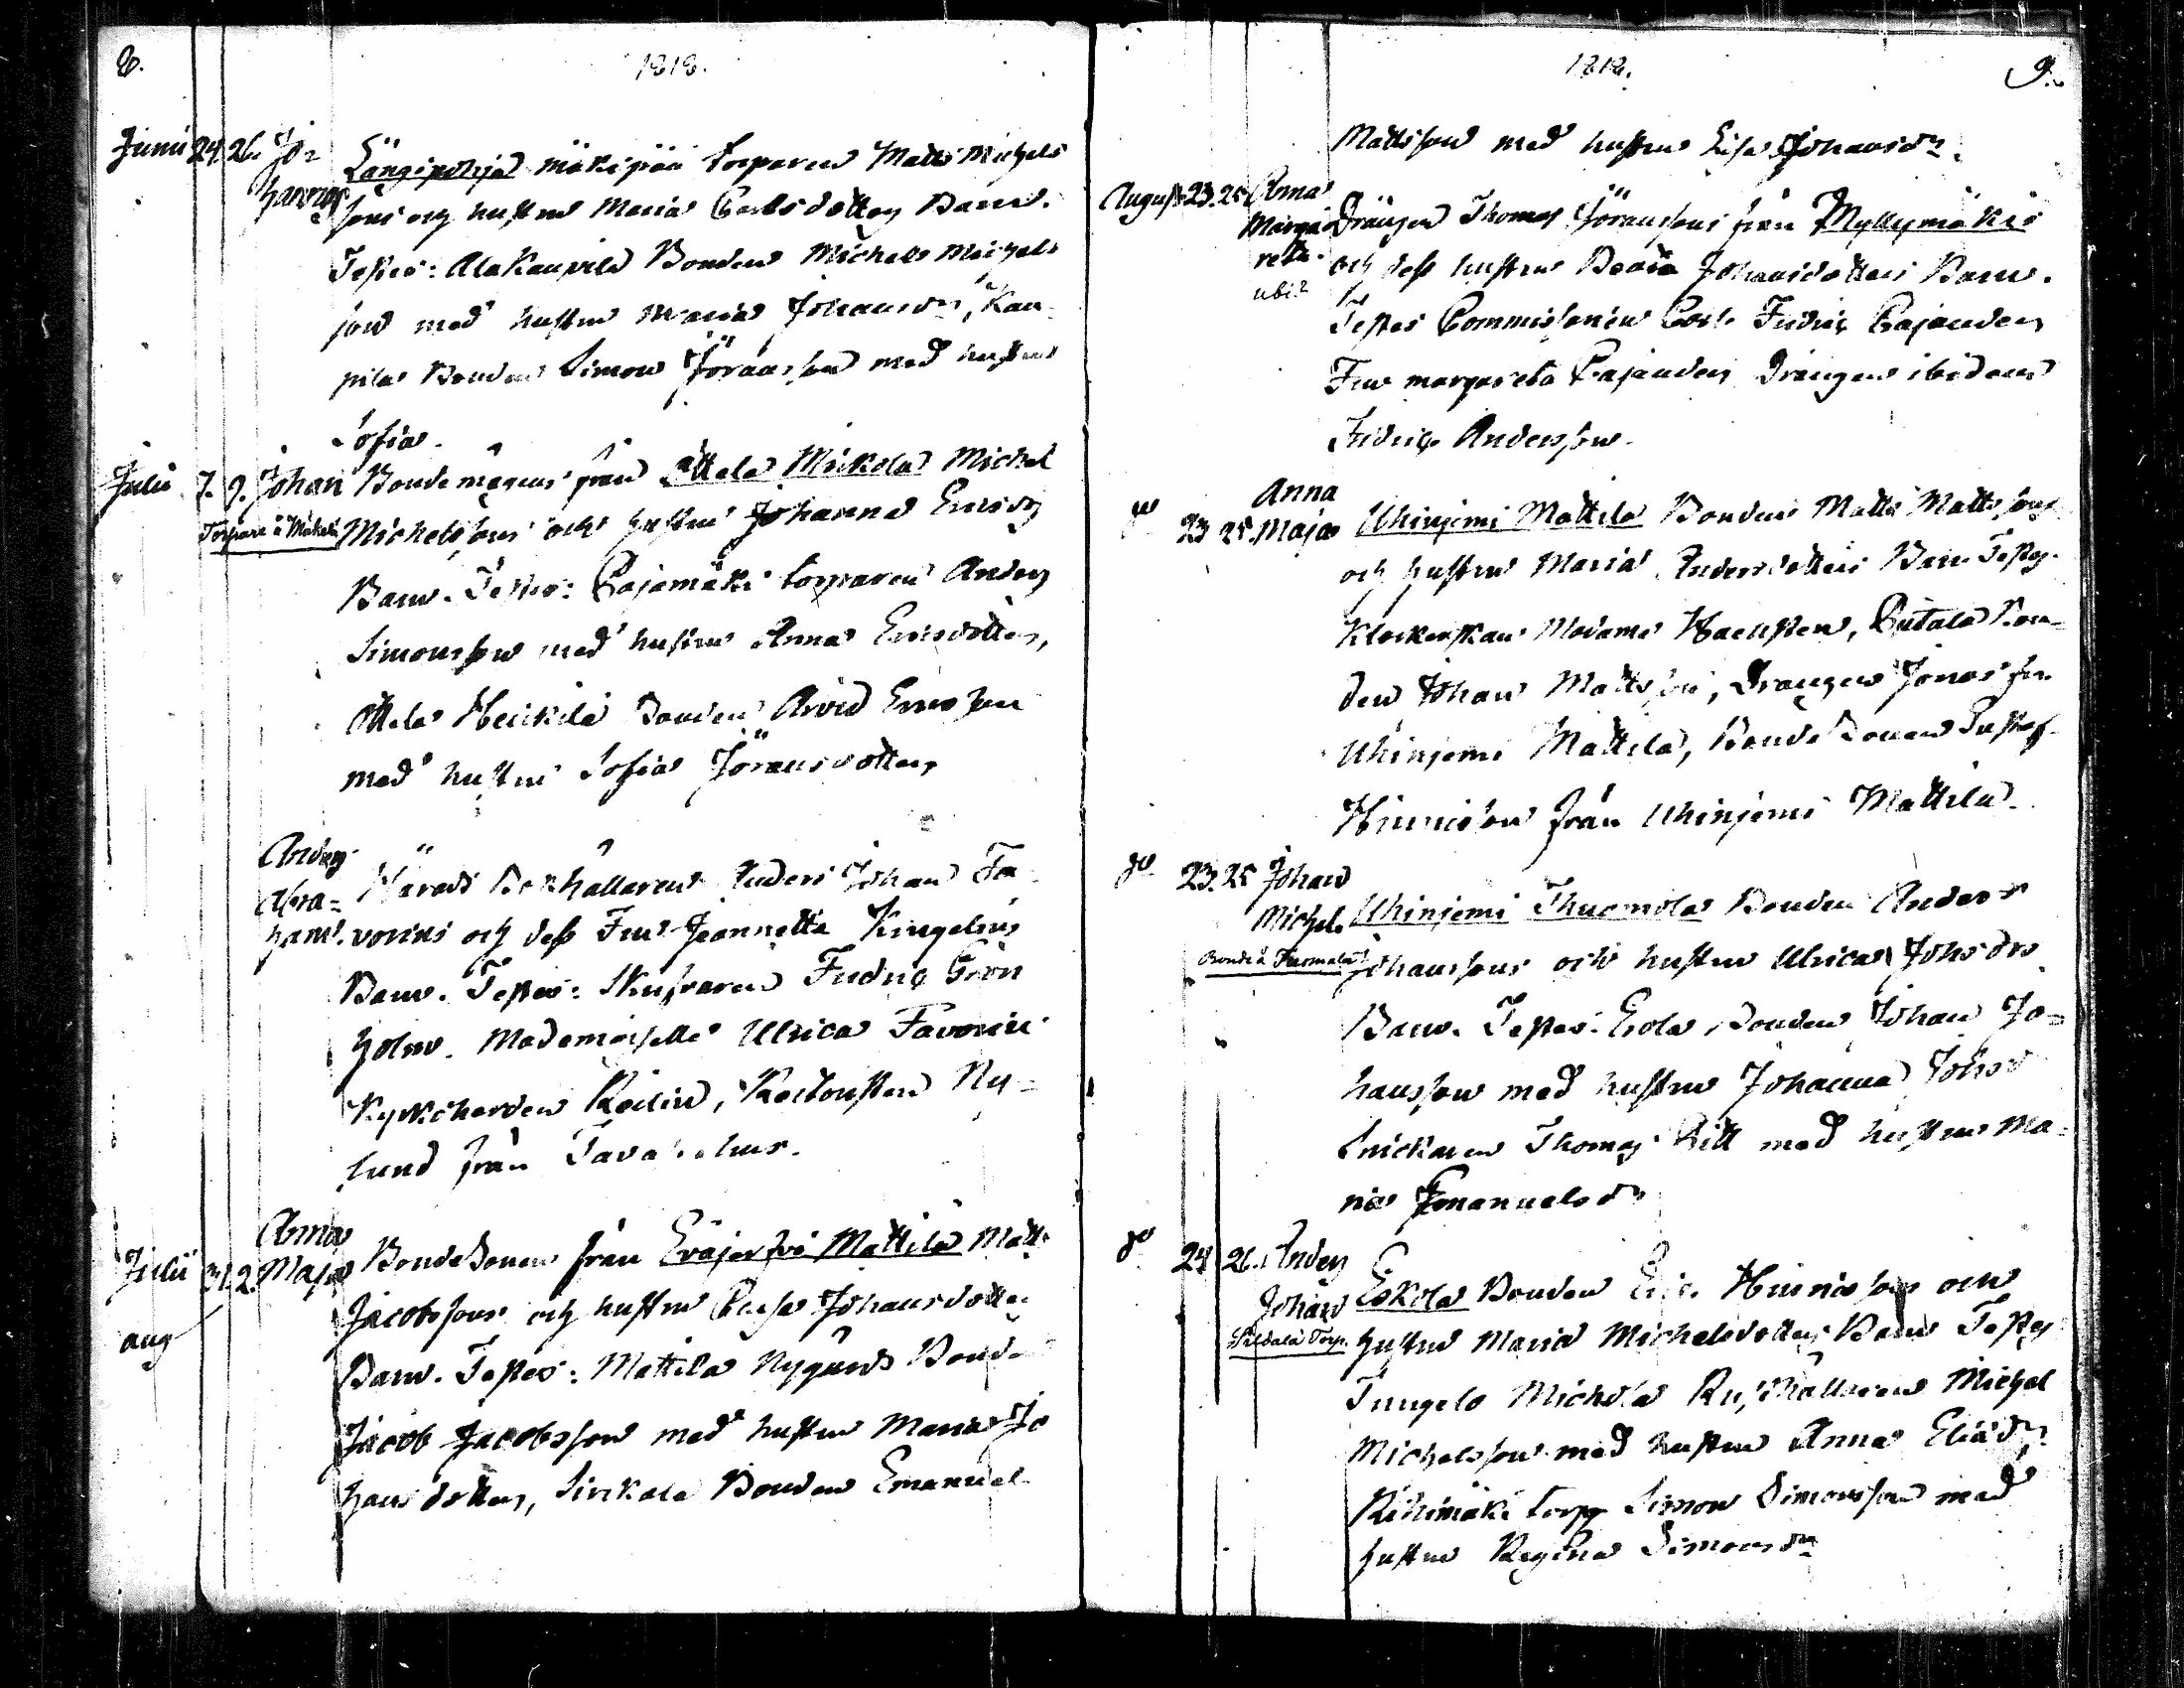 8.
1818.
Junii 24. 26. Jo=
hannes
Längipohja mäkipää torparen Matts Michels
sons och hustrus Maria Carlsdotters Barn.
Testes: Alakauvila Bonden Michel Michels
son med hustru Maria Johansdr, Kau
pila Bonden Simon Jöransson med hustru
Sofia.
Julii 7. 9. Johan Bonde mågens från Attala Mickola Michel
Torpare å Mickola Michelssons och hustrus Johanna Ericsdrs
Barn. Testes: Pajamäki torparen Anders
Simonsson med hustru Anna Ericsdotter,
Attala Heickilä Bonden Arvid Ericsson
med hustru Sofia Jöransdotter
Anders
Abra=
ham. Härads Bokhållaren Anders Johan Fa
vorins och dess Fru Jeannette Kingelins
Barn. Testes: Skusraren Fredric Grön
holm. Mademoiselle Ulrica Favorin
Kyrkoherden Relin, Kaltonsten Ny=
lund från Tavastehus.
Anna
Julii 31. 2. Maja Bondesonen från Eräjerfvi Mattila Matts
aug
Jacobssons och hustrus Caisa Johansdotters
Barn. Testes: Mattila Nygårds Bonde
Jacob Jacobsson med hustru Maria Jo
hansdotter, Sirckala Bonden Emanuel
1818.
9.
Mattsson med hustru Lisa Johansdr.
August 23. 25 Anna
Marga
reta.
ubi?
Drängen Thomas Jöranssons från Myllymäki
och dess hustrus Beata Johansdotters Barn.
Testes Commissarien Carl Fredric Cajander
Fru Margareta Cajander Drängen ibidem
Fredric Andersson.
Anna
do 23 25. Maja Uhinjemi Mattila Bonden Matts Mattssons
och hustrus Maria Andersdotters Barn Testes
Klockerskan Madame Haensten, Eutala Bon=
den Johan Mattsson, Drängen Jonas från
Uhinjemi Mattila, Bonde sonen Gustaf
Hinricsson från Uhinjemi Mattila.
do 23. 25 Johan
Michel. Uhinjemi Thuomola Bonden Anders
Bonde å Tuomala Johanssons och hustrus Ulrica Johsdrs
Barn. Testes: Erola Bonden Johan Jo=
hansson med hustru Johanna Johsd
Snickaren Thomas Kitt med hustru Ma=
ria Emanuelsdr
do 24 26. Anders
Johan Eskola Bonden Eric Hinricssons och
Sildala Torp. hustrus Maria Michelsdotters Barn Testes
Tungelo Michola Rusthållaren Michel
Michelsson med hustru Anna Eliædr
Riihimäki torp Simon Simonsson med
hustru Regina Simonsdr